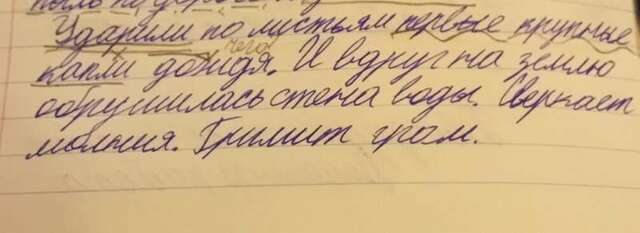 пыль по дороге
Ударили по листьям первые крупные
чего
капли дождя. И вдруг на землю
обрушилась стена воды. Сверкает
молния. Гримит гром.